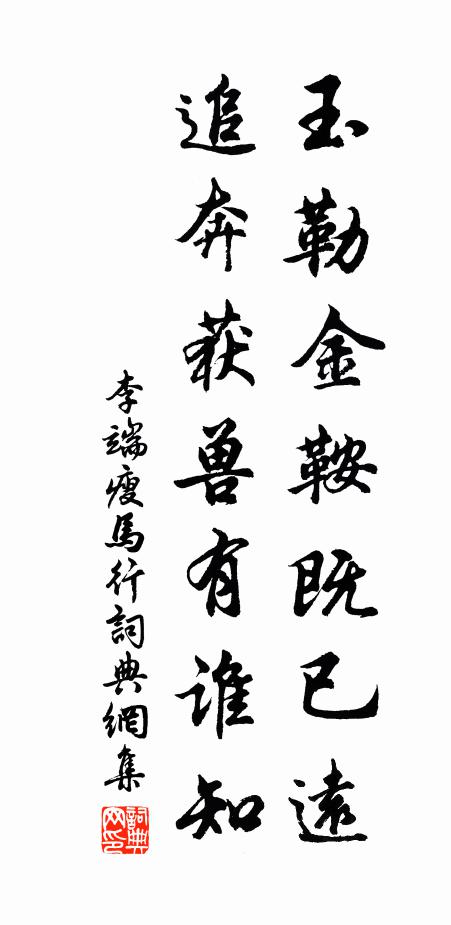 玉勒金鞍既已遠
追奔获兽有谁知
李端瘦馬行詞典網集
詞典网印